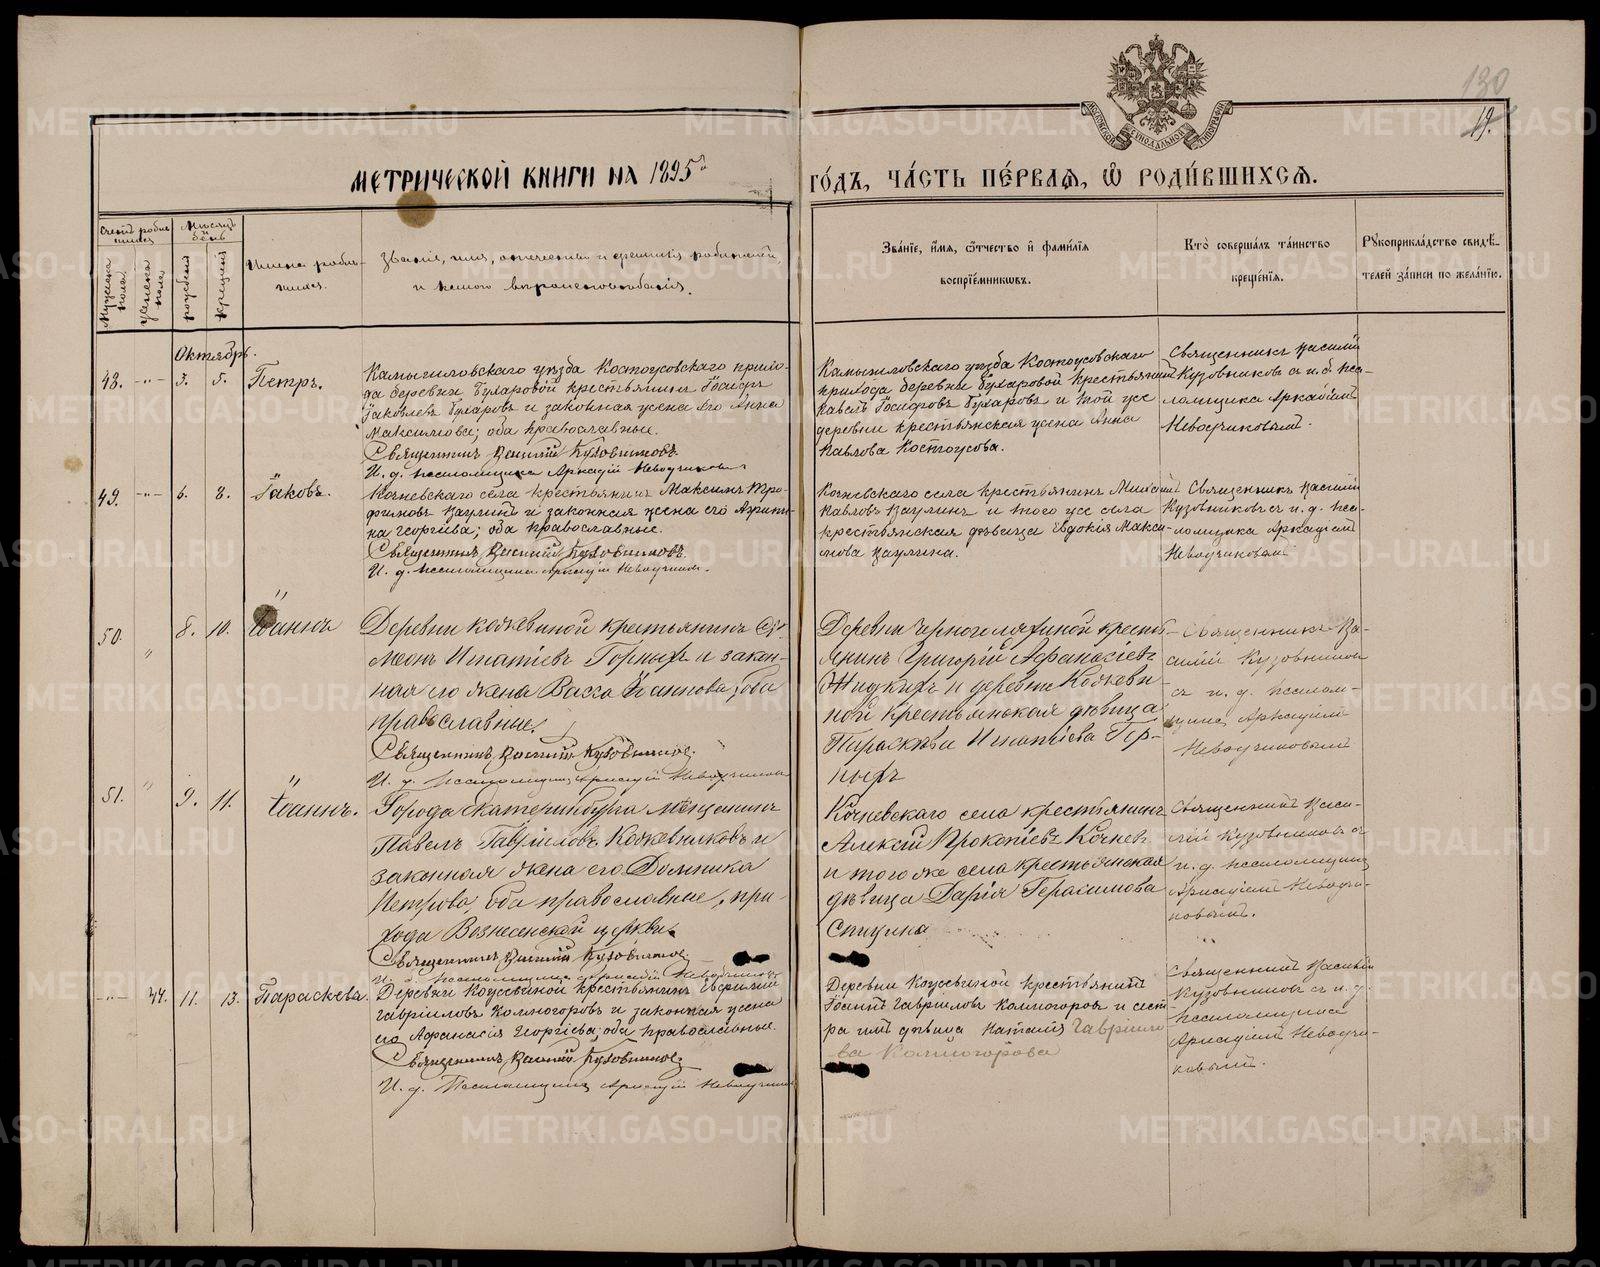 130
19.
МЕТРИЧЕСКОЙ КНИГИ НА 1895й
ГО́ДЪ, ЧА́СТЬ ПЕ́РВАѦ, Ѡ҆ РОДИ́ВШИХСѦ.
МОСКОВСКОЙ СѴНОДАЛЬНОЙ ТИПОГРАФІИ
Счетъ родив-
шихся
Мѣсяцъ
и
день
Мужска
пола
Женска
пола
рожденія
крещенія
Имена родив-
шихся.
Званіе, имя, отчество и фамилія родителей,
и какого вѣроисповѣданія.
Зва́нїе, и҆́мѧ, ѻ҆́тчество и҆ фами́лїѧ
воспрїе́мниковъ.
Кто̀ соверша́лъ та́инство
креще́нїѧ.
Рꙋкоприкла́дство свидѣ́-
телей за́писи по жела́нїю.
Октябрь.
48. -"- 3. 5. Петръ.
Камышловскаго уѣзда Костоусовскаго прихо-
да деревни Бухаровой крестьянинъ Іосифъ
Іаковлевъ Бухаровъ и законная жена его Анна
Максимова; оба православные.
Священникъ Василій Кузовниковъ.
И. д. псаломщика Аркадій Неводчиковъ
Камышловскаго уѣзда Костоусовскаго
прихода деревни Бухаровой крестьянинъ
Павелъ Іосифовъ Бухаровъ и той же
деревни крестьянская жена Анна
Павлова Костоусова.
Священникъ Василій
Кузовниковъ съ и. д. пса-
ломщика Аркадіемъ
Неводчиковымъ.
49. -"- 6. 8. Іаковъ.
Кочневскаго села крестьянинъ Максимъ Тро-
фимовъ Ваулинъ и законная жена его Агрипи-
на Георгіева; оба православные.
Священникъ Василій Кузовниковъ.
И. д. псаломщика Аркадій Неводчиковъ.
Кочневскаго села крестьянинъ
Павловъ Ваулинъ и того же села
крестьянская дѣвица Евдокія Макси-
мова Ваулина.
Священникъ Василій
Кузовниковъ съ и. д. пса-
ломщика Аркадіемъ
Неводчиковымъ
50. " 8. 10. Іоаннъ
Деревни Кожевиной крестьянинъ Си-
меонъ Игнатіевъ Горныхъ и закон-
ная его жена Васса Іоаннова, оба
православные.
Священникъ Василій Кузовниковъ.
И. д. псаломщика Аркадій Неводчиковъ
Деревни Черноголяминой кресть-
янинъ Григорій Аѳанасіевъ
Жидкихъ и деревни Кожеви-
ной крестьянская дѣвица
Параскева Игнатіева Гор-
ныхъ
Священникъ Ва-
силій Кузовниковъ
съ и. д. псалом-
щика Аркадіемъ
Неводчиковымъ
51. " 9. 11. Іоаннъ.
Города Екатеринбурга мѣщанинъ
Павелъ Гавріиловъ Кожевниковъ и
законная жена его Домника
Петрова, оба православные, при-
хода Вознесенской церкви.
Священникъ Василій Кузовниковъ.
И. д. псаломщика Аркадій Неводчиковъ
Кочневскаго села крестьянинъ
Алексій Прокопіевъ Кочневъ
и того же села крестьянская
дѣвица Дарія Герасимова
Спицина
Священникъ Васи-
лій Кузовниковъ съ
и. д. псаломщика
Аркадіемъ Неводчи-
ковымъ.
-"- 44. 11. 13. Параскева.
Деревни Кожевиной крестьянинъ
Гавріиловъ Колмогоровъ и законная жена
его Аѳанасія Георгіева; оба православные.
Священникъ Василій Кузовниковъ
И. д. Псаломщика Аркадій Неводчиковъ
Деревни Кожевиной крестьянинъ
Іоаннъ Гавріиловъ Колмогоровъ и сест-
ра имъ дѣвица Наталія Гавріило-
ва Колмогорова
Священникъ Василій
Кузовниковъ съ и. д.
псаломщика
Аркадіемъ Неводчи-
ковымъ.
METRIKI.GASO-URAL.RU